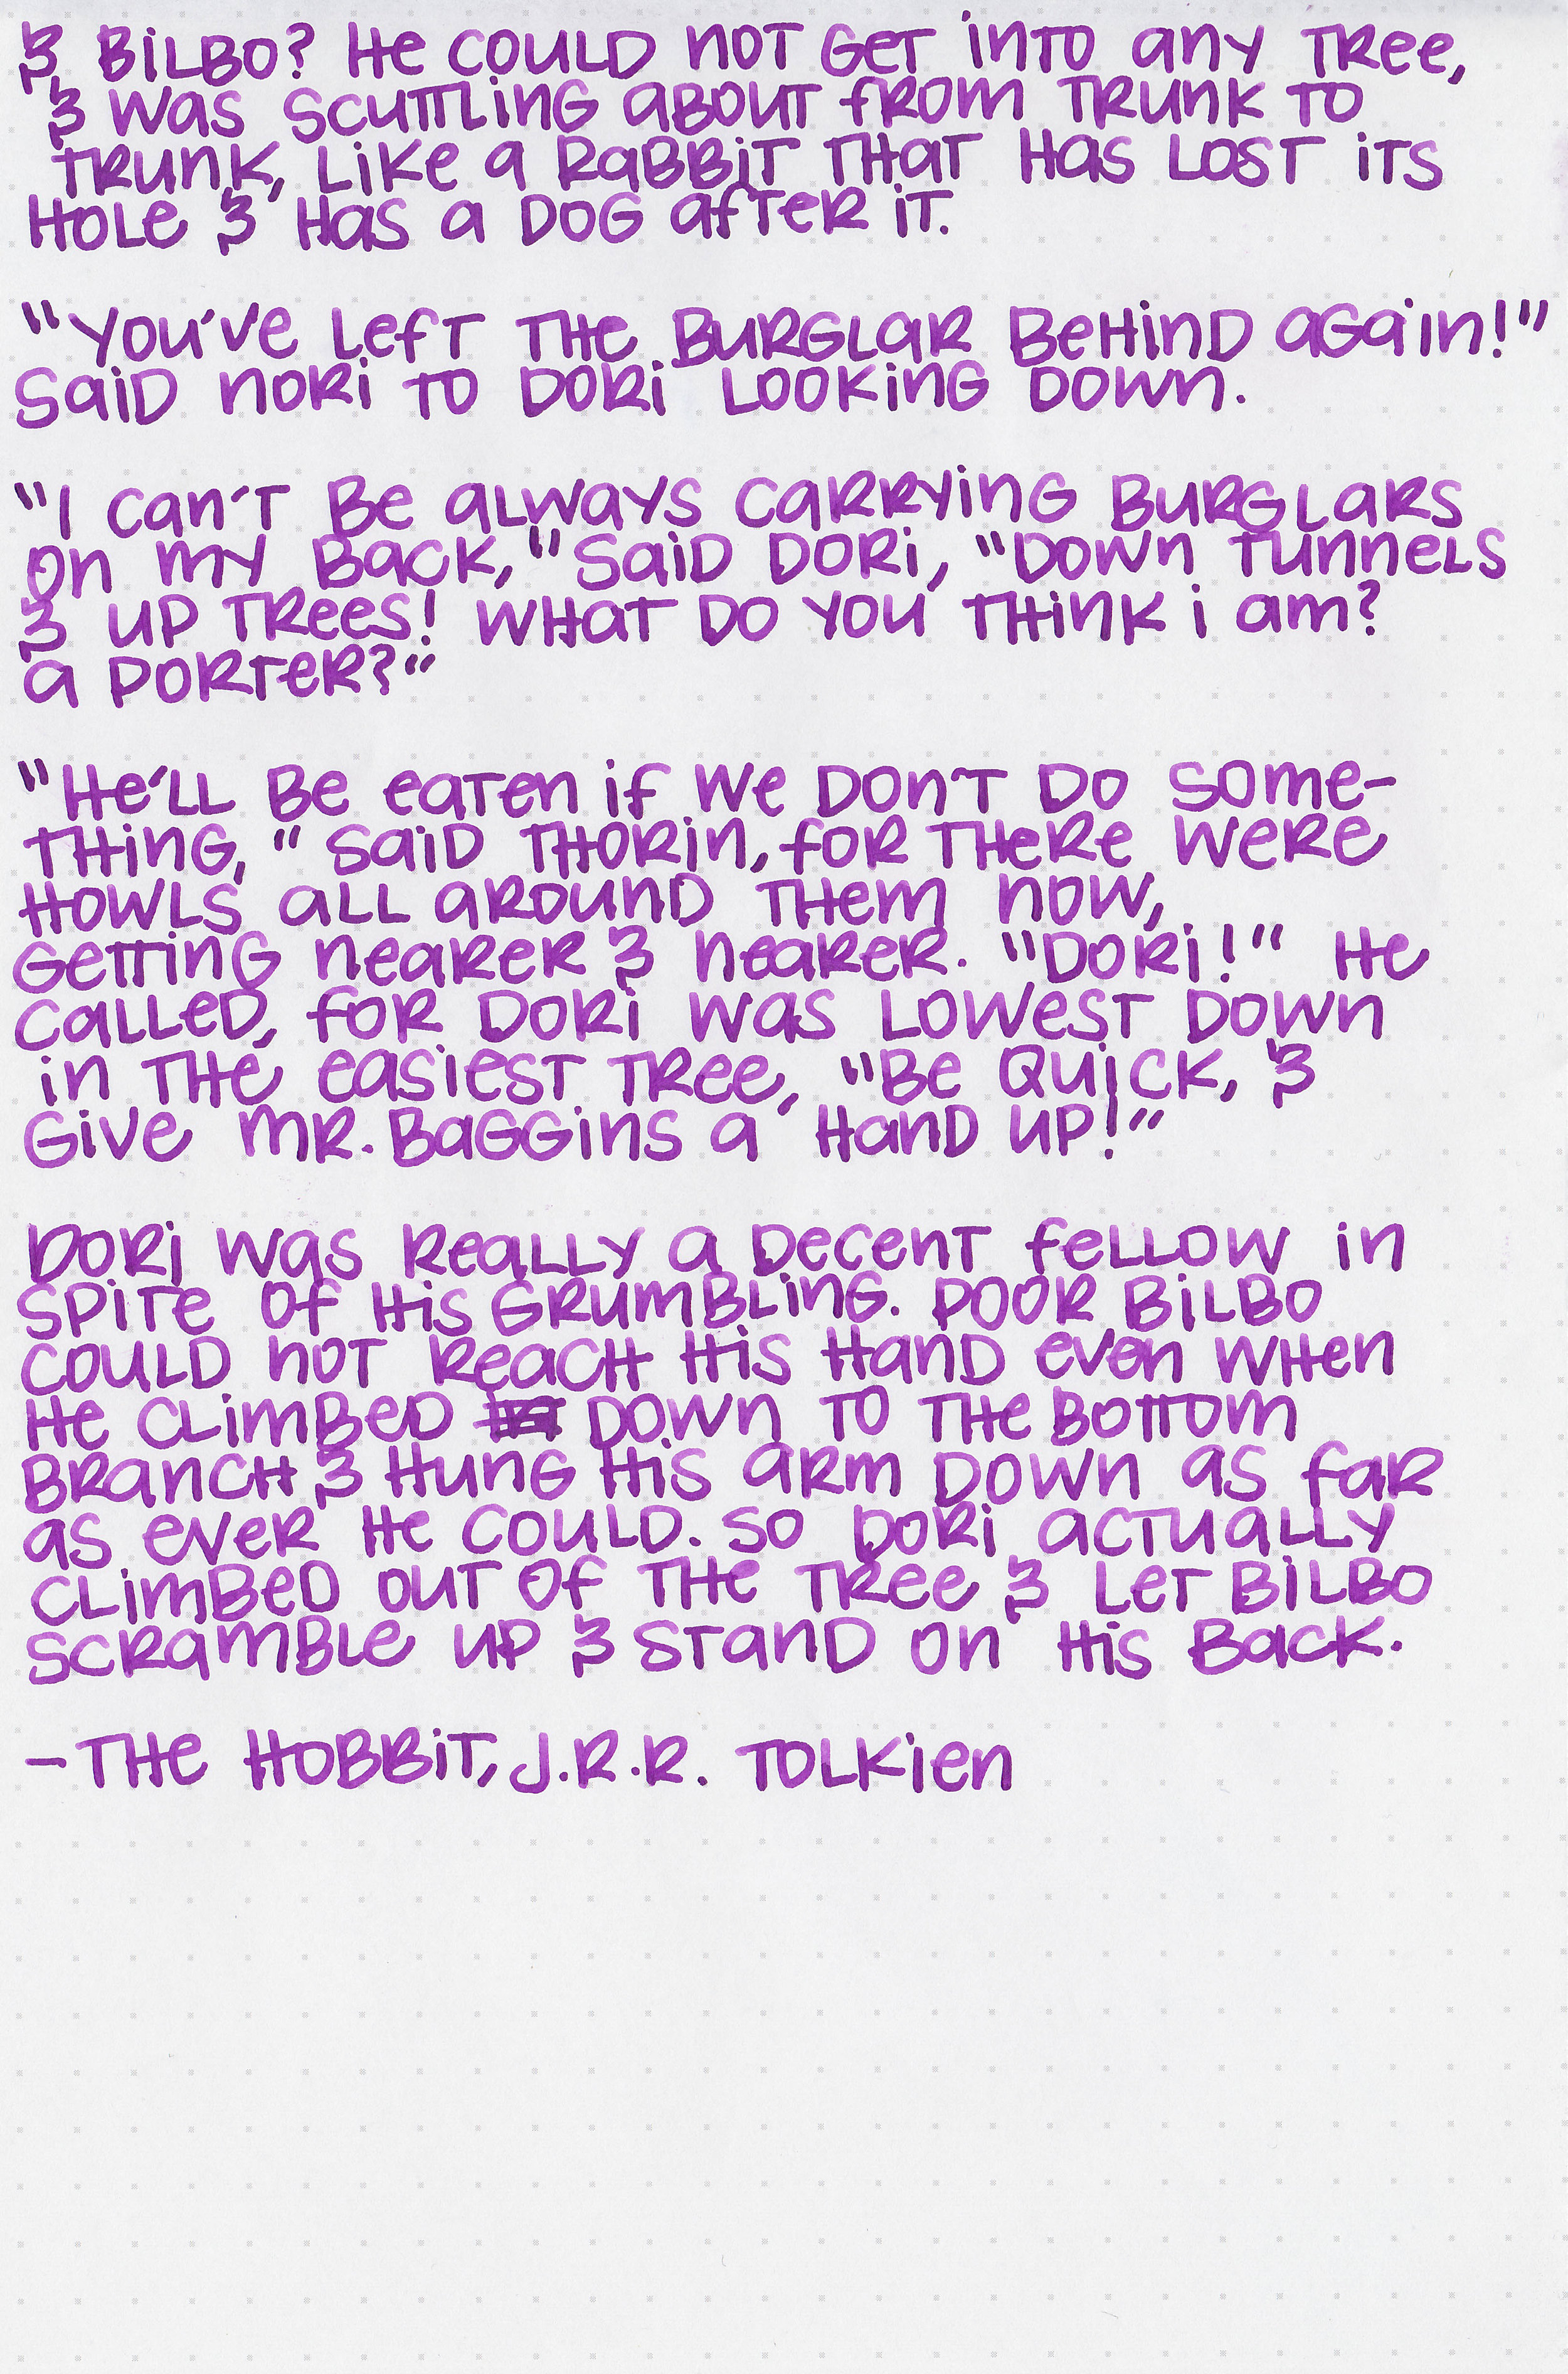 & Bilbo? He could not get into any tree,
& was scuttling about from trunk to
trunk, like a rabbit that has lost its
hole & has a dog after it.
"You've left the burglar behind again!"
said Nori to Dori looking down.
"I can't be always carrying burglars
on my back," said Dori, "down tunnels
& up trees! What do you think i am?
a porter?"
"He'll be eaten if we don't do some-
thing," said Thorin, for there were
howls all around them now,
getting nearer & nearer. "Dori!" he
called, for Dori was lowest down
in the easiest tree, "be quick, &
give Mr. Baggins a hand up!"
Dori was really a decent fellow in
spite of his grumbling. Poor Bilbo
could not reach his hand even when
he climbed down to the bottom
branch & hung his arm down as far
as ever he could. So Dori actually
climbed out of the tree & let Bilbo
scramble up & stand on his back.
- The Hobbit, J.R.R. Tolkien